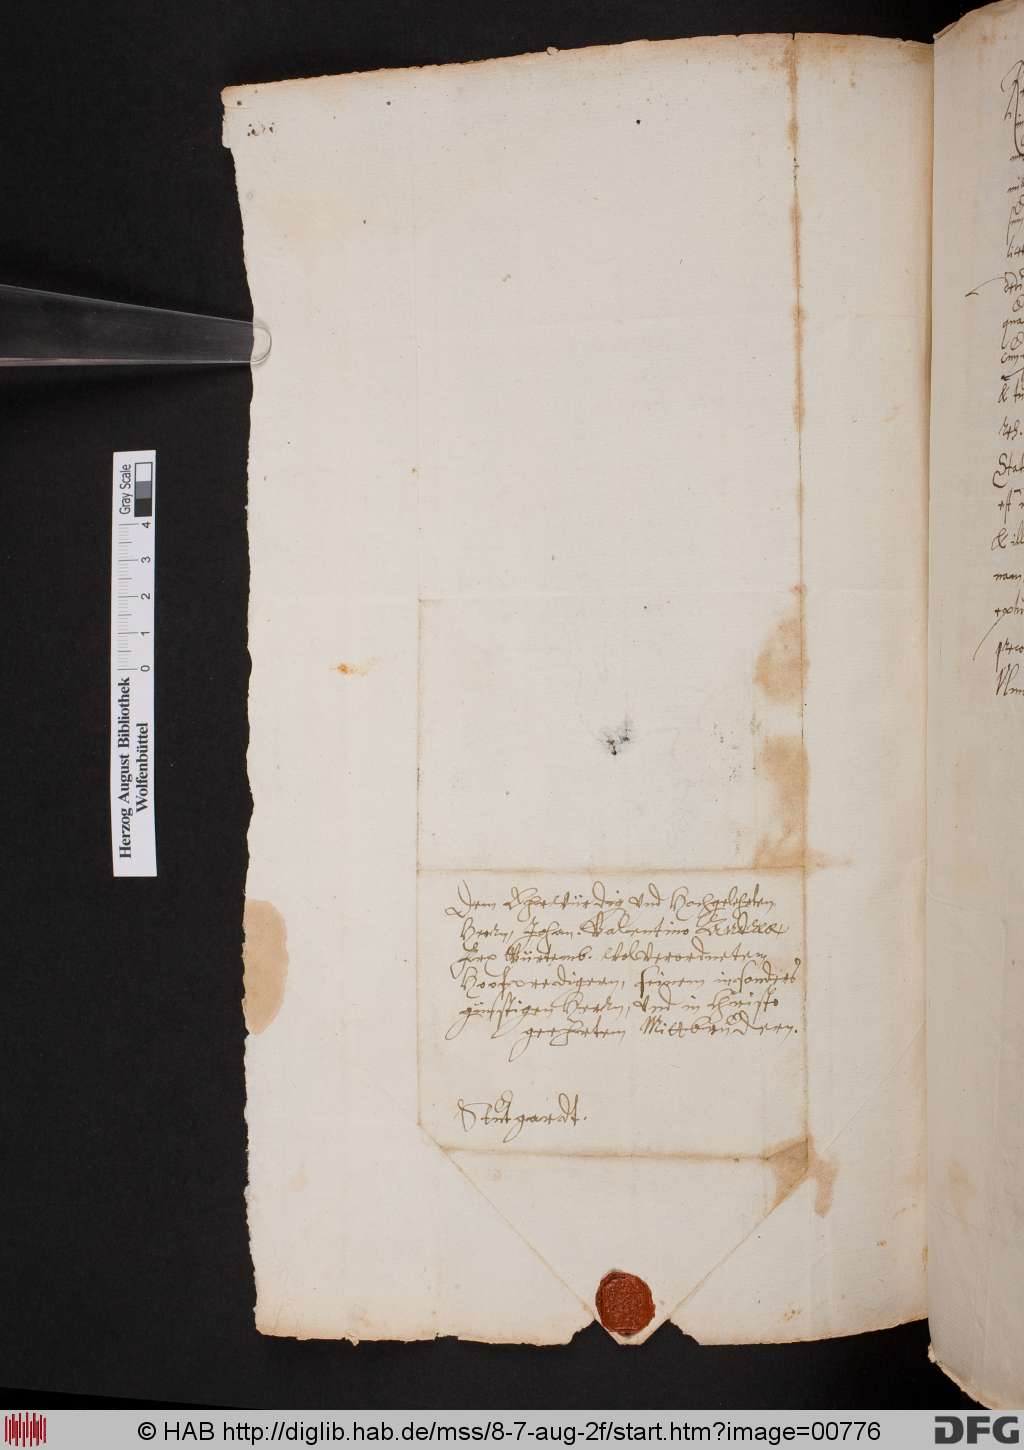 Dem Ehrwürdig vnd Hochgelehrten
Herrn, Johan. Valentino Andreæ
Frx Würtemb. wolverordnetem
Hoofpredigern, seinem insonders
günstigen Herrn, vnd in Christo
geehrtem Mittbrüdern.
Stutgardt.
Gray Scale
0 1 2 3 4
Herzog August Bibliothek
Wolfenbüttel
© HAB http://diglib.hab.de/mss/8-7-aug-2f/start.htm?image=00776
DFG